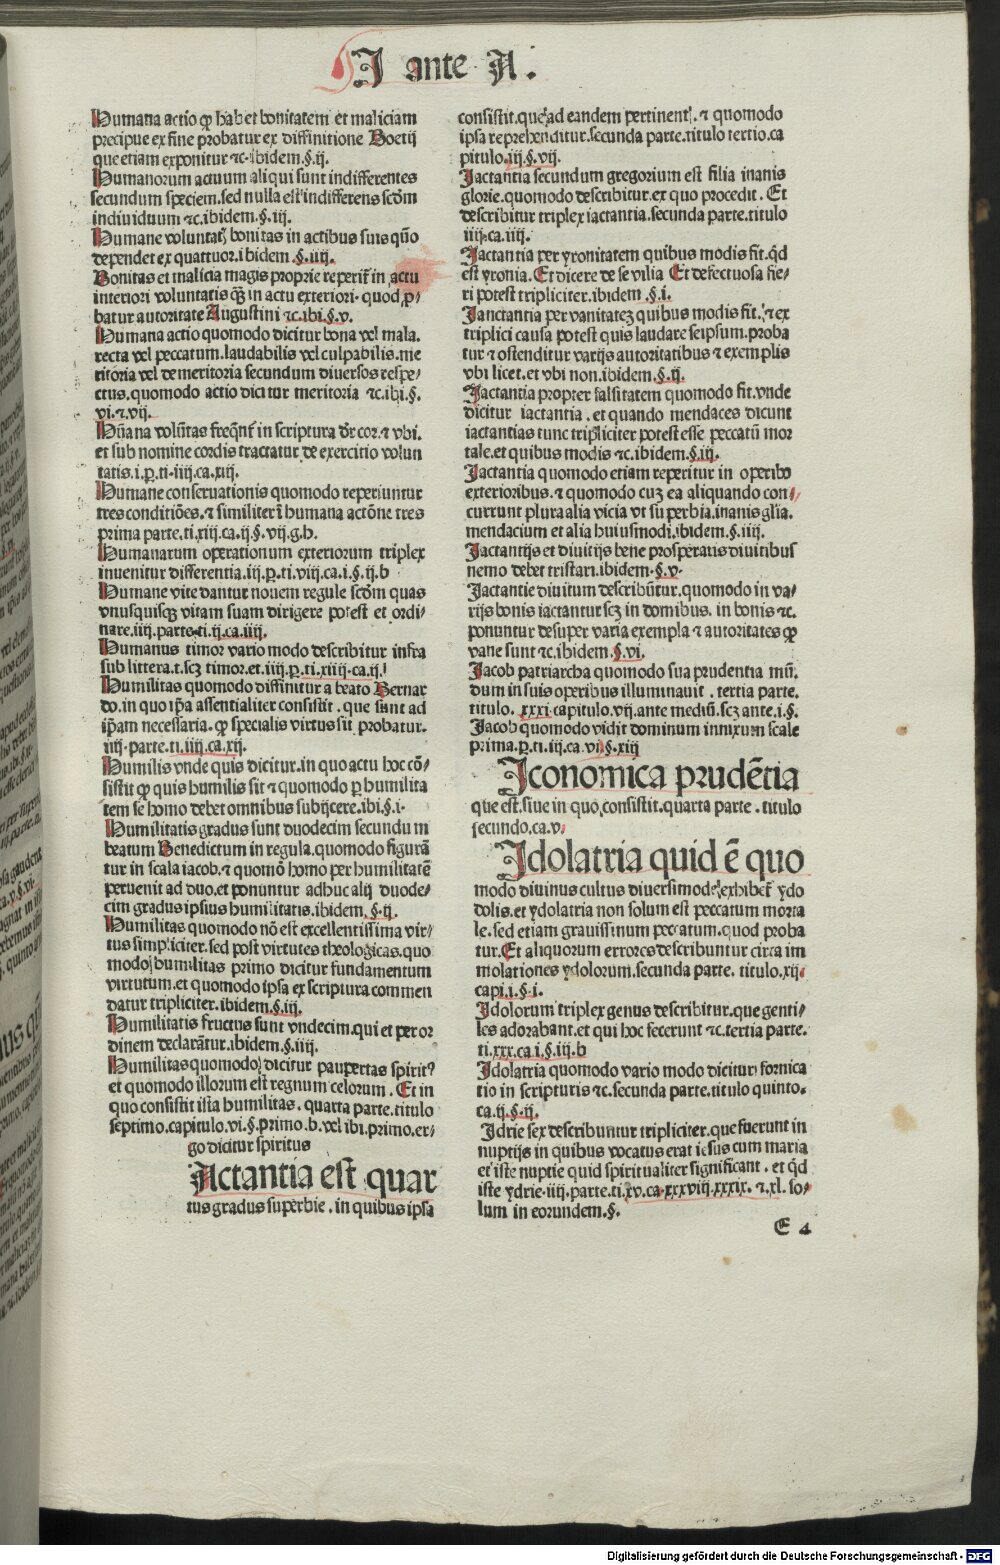 I ante A.
Humana actio ꝙ habet bonitatem et maliciam
precipue ex fine probatur ex diffinitione Boetij
que etiam exponitur ⁊c. ibidem.§.ij.
Humanorum actuum aliqui sunt indifferentes
secundum speciem.sed nulla est indifferens scđm
individuum ⁊c.ibidem.§.iij.
Humane voluntatꝭ bonitas in actibus suis quõ
dependet ex quattuor.ibidem.§.iiij.
Bonitas et malicia magis proprie reperit᷑ in actu
interiori voluntatis qꝫ in actu exteriori.quod ꝓ⸗
batur autoritate Augustini ⁊c.ibi.§.v.
Humana actio quomodo dicitur bona vel mala.
recta vel peccatum.laudabilis vel culpabilis.me
ritoria vel demeritoria secundum diversos respe⸗
ctus.quomodo actio dicitur meritoria ⁊c.ibi.§.
vi.⁊.vij.
Hũana volũtas freq̃nt᷑ in scriptura dr̃ cor.⁊ vbi.
et sub nomine cordis tractatur de exercitio volun
tatis.i.ꝑ.ti.iiij.ca.xij.
Humane conseruationis quomodo reperiuntur
tres conditiões.⁊ similiter ĩ humana actõne tres
prima parte.ti.xiij.ca.ij.§.vij.g.h.
Humanarum operationum exteriorum triplex
inuenitur differentia.iij.ꝑ.ti.viij.ca.i.§.ij.b
Humane vite dantur nouem regule scđm quas
vnusquisqꝫ vitam suam dirigere potest et ordi⸗
nare.iiij.parte.ti.ij.ca.iiij.
Humanus timor vario modo describitur infra
sub littera.t.scꝫ timor.et.iiij.ꝑ.ti.xiiij.ca.ij.
Humilitas quomodo diffinitur a beato Bernar
do.in quo ip̃a assentialiter consistit.que sunt ad
ip̃am necessaria.ꝙ specialis virtus sit probatur.
iiij.parte.ti.iiij.ca.xij.
Humilis vnde quis dicitur.in quo actu hoc cõ⸗
sistit ꝙ quis humilis sit ⁊ quomodo ꝑ humilita
tem se homo debet omnibus subijcere.ibi.§.i.
Humilitatis gradus sunt duodecim secundum
beatum Benedictum in regula.quomodo figurã
tur in scala iacob.⁊ quomõ homo per humilitatẽ
peruenit ad duo.et ponuntur adhuc alij duode⸗
cim gradus ipsius humilitatis.ibidem.§.ij.
Humilitas quomodo nõ est excellentissima vir⸗
tus simpliciter.sed post virtutes theologicas.quo
modo humilitas primo dicitur fundamentum
virtutum.et quomodo ipsa ex scriptura commen
datur tripliciter.ibidem.§.iij.
Humilitatis fructus sunt vndecim.qui et per or
dinem declarãtur.ibidem.§.iiij.
Humilitas quomodo dicitur paupertas spiritꝰ
et quomodo illorum est regnum celorum. Et in
quo consistit ista humilitas.quarta parte.titulo
septimo.capitulo.vi.§.primo.b.vel ibi.primo.er⸗
go dicitur spiritus
Actantia est quar
tus gradus superbie.in quibus ipsa
consistit.que ad eandem pertinent.⁊ quomodo
ipsa reprehenditur.secunda parte.titulo tertio.ca
pitulo.iij.§.vij.
Jactantia secundum gregorium est filia inanis
glorie.quomodo describitur.ex quo procedit. Et
describitur triplex iactantia.secunda parte.titulo
iiij.ca.iiij.
Jactantia per yronitatem quibus modis fit.q̃d
est yronia. Et dicere de se vilia Et defectuosa fie⸗
ri potest tripliciter.ibidem.§.i.
Janctantia per vanitateꝫ quibus modis fit.⁊ ex
triplici causa potest quis laudare seipsum.proba
tur ⁊ ostenditur varijs autoritatibus ⁊ exemplis
vbi licet.et vbi non.ibidem.§.ij.
Jactantia propter falsitatem quomodo fit.vnde
dicitur iactantia.et quando mendaces dicunt
iactantias tunc tripliciter potest esse peccatũ mor
tale.et quibus modis ⁊c.ibidem.§.iij.
Jactantia quomodo etiam reperitur in operibꝰ
exterioribus.⁊ quomodo cuꝫ ea aliquando con⸗
currunt plura alia vicia vt superbia.inanis gl̃ia.
mendacium et alia huiusmodi.ibidem.§.iiij.
Jactantijs et diuitijs bene prosperatis diuitibus
nemo debet tristari.ibidem.§.v.
Jactantie diuitum describũtur.quomodo in va⸗
rijs bonis iactantur scꝫ in domibus.in bonis ⁊c.
ponuntur desuper varia exempla ⁊ autoritates ꝙ
vane sunt ⁊c.ibidem.§.vi.
Jacob patriarcha quomodo sua prudentia mũ⸗
dum in suis operibus illuminauit.tertia parte.
titulo.xxxi.capitulo.vij.ante mediũ.scꝫ ante.i.§.
Jacob quomodo vidit dominum innixum scale
prima.ꝑ.ti.iij.ca.vi.§.xiij
Iconomica prudẽtia
que est.siue in quo consistit.quarta parte.titulo
secundo.ca.v.
Idolatria quid ẽ quo
modo diuinus cultus diuersimode exhibet᷑ ydo
dolis.et ydolatria non solum est peccatum morta
le.sed etiam grauissimum peccatum.quod proba
tur. Et aliquorum errores describuntur circa im
molationes ydolorum.secunda parte.titulo.xij.
capi.i.§.i.
Idolorum triplex genus describitur.que genti⸗
les adorabant.et qui hoc fecerunt ⁊c.tertia parte.
ti.xxx.ca.i.§.iij.b
Idolatria quomodo vario modo dicitur fornica
tio in scripturis ⁊c.secunda parte.titulo quinto.
ca.ij.§.ij.
Idrie sex describuntur tripliciter.que fuerunt in
nuptijs in quibus vocatus erat iesus cum maria
et iste nuptie quid spiritualiter significant.et q̃d
iste ydrie.iiij.parte.ti.xv.ca.xxxviij.xxxix.⁊.xl.so⸗
lum in eorundem.§.
E 4
Digitalisierung gefördert durch die Deutsche Forschungsgemeinschaft - DFG